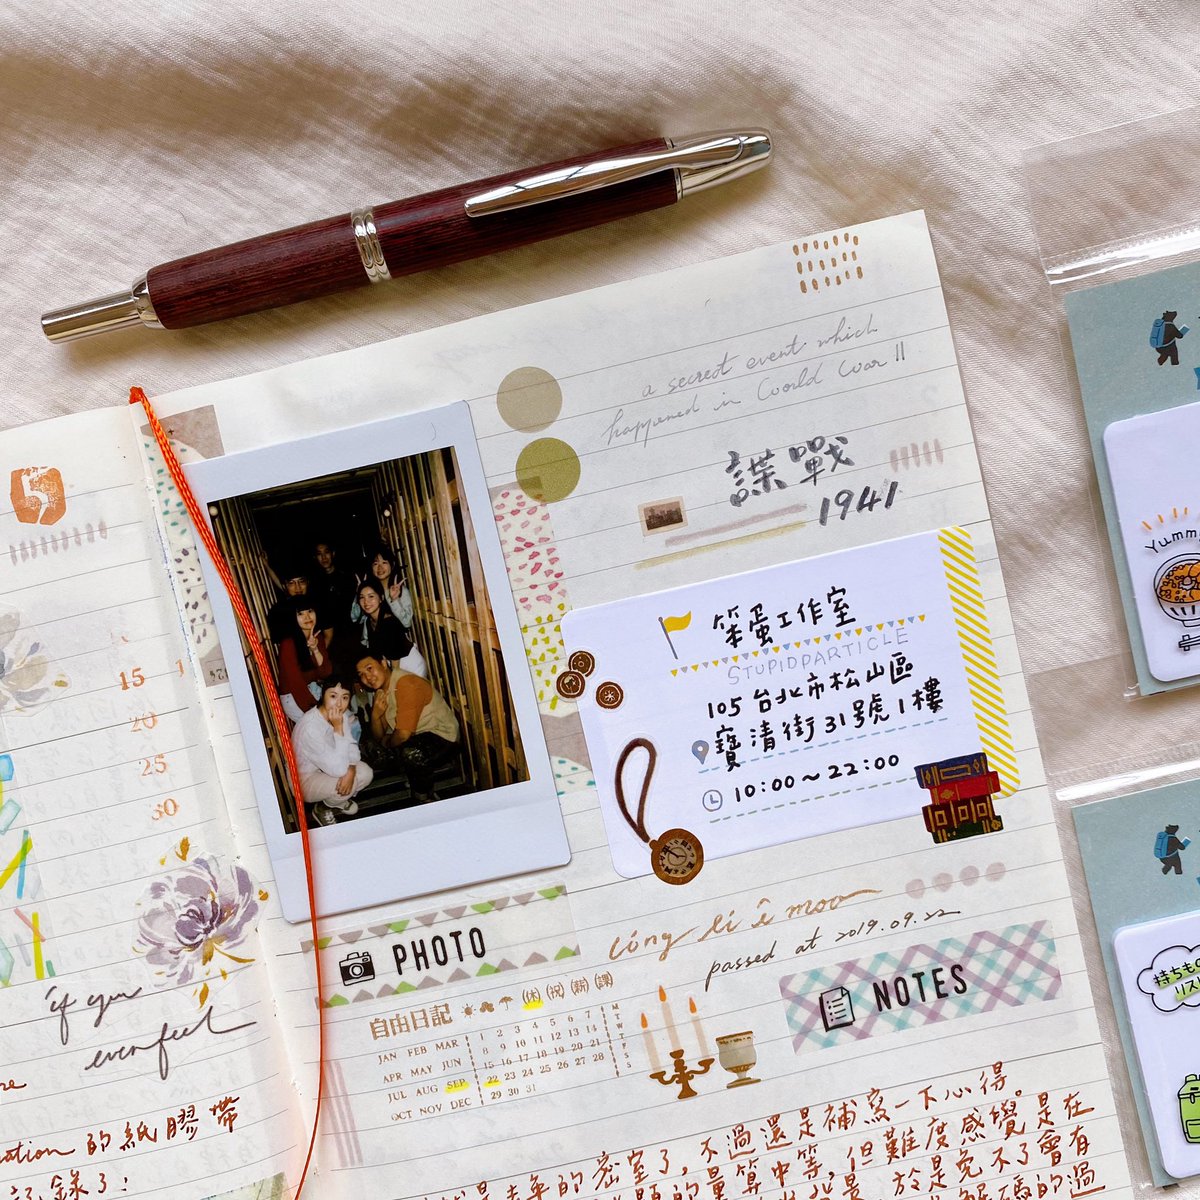 5
15
20
25
30
if you
even feel
的紙膠帶
錄了!
a secret event which
happened in World War II
諜戰
1941
笨蛋工作室
STUPIDPARTICLE
105 台北市松山區
寶清街31號1樓
10:00~22:00
passed at 2019.09.22
PHOTO
NOTES
自由日記 休 祝 薪 課
JAN FEB MAR 1 2 3 4 5 6 7 M
APR MAY JUN 8 9 10 11 12 13 14 T
JUL AUG SEP 15 16 17 18 19 20 21 W
OCT NOV DEC 22 23 24 25 26 27 28 T
29 30 31 F
S
S
密室了,不過還是補寫一下心得。
的量算中等,但難度感覺是在
於是免不了會有
解碼的過
Yumm
持ちもの
リスト